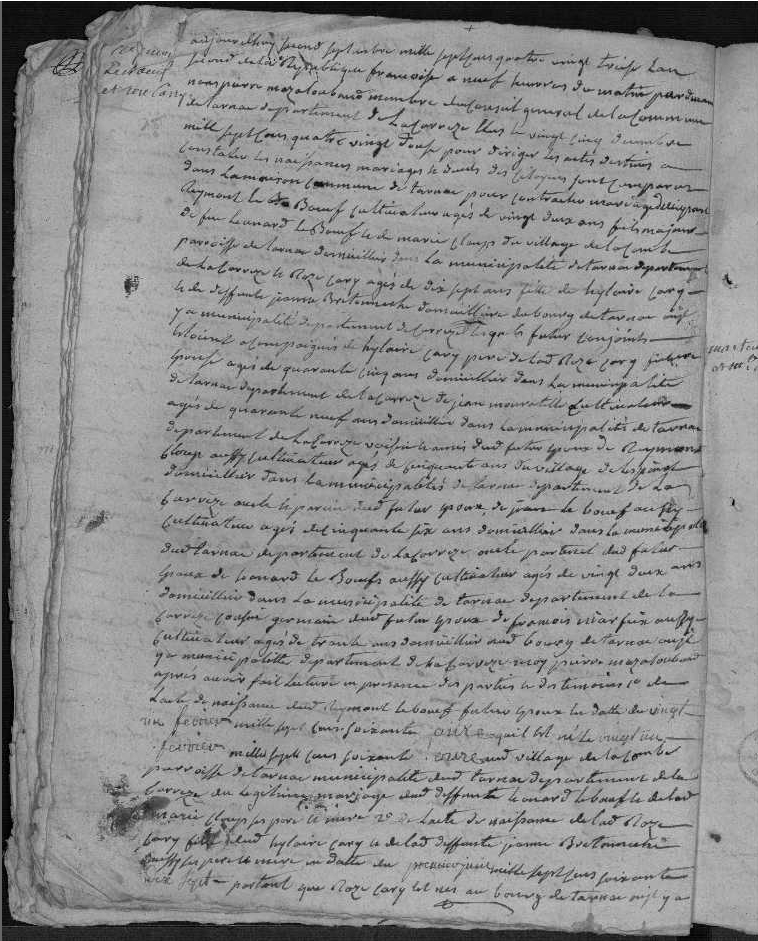 Le Bœuf
et roze Cary
aujourdhuy second septembre mille sept cens quatre vingt treise Lan
second de la Republique francoise a neuf heures du matin par devan
nous pierre mazaloubaud membre du Conseil general de la Commune
de tarnac departement de La Correze Elus le vingt cinq decembre
mille sept Cens quatre vingt douse pour diriger les actes destinés a
Constater les naissances mariages et deceds des Citoyens sont Comparus
dans La maison Commune de tarnac pour contracter mariage
Reymont le Bœuf Cultivateur agés de vingt deux ans fils majeur
de feu Leonard le Bœuf et de marie Cloup du village de la Combe
parroisse de tarnac domicillier dans La municipalité de tarnac departement
de La Correze et Roze Cary agés de dix sept ans fille de hylaire Cary
et de deffunte jeanne Bretenouche domicilliere du bourg de tarnac
municipalité departement de Correze Lesquels futur Conjoints
etoient acompaignés de hylaire Cary pere de lad Roze Cary future
Epouse agés de quarante Cinq ans domicillier dans La municipalité
de tarnac departement de La Correze de jean Cultivateur
agés de quarante neuf ans domicillier dans La municipalité de tarnac
departement de La Correze voisin et amis dud futur Epoux de Reymont
Cloup aussy Cultivateur agés de Cinquante ans du village de
domicillier dans La municipalités de tarnac departement de La
Correze oncle et parrin dud futur Epoux de jean le bœuf aussy
Cultivateur agés de Cinquante six ans domicillier dans La municipalité
dud tarnac departement de La Correze oncle paternel dud futur
Epoux de Leonard le Bœuf aussy Cultivateur agés de vingt deux ans
domicillier dans La municipalité de tarnac departement de la
Correze Cousin germain dud futur Epoux de francois aussy
Cultivateur agés de trante ans domicillier aud bourg de tarnac
municipalitté departement de La Correze moy pierre mazaloubaud
apres avoir fait Lecture en presance des parties et des temoins 1° de
Lacte de naissance dud Reymont le bœuf futur Epoux en datte du vingt
un fevrier mille sept Cens soixante onze quil est né le vingt un
fevrier mille sept Cens soixante onze aud village de la Combe
parroisse de tarnac municipalité dud tarnac departement de la
Correze du Legitime mariage dud deffunt Leonard le bœuf et de lad
marie Cloup ses pere et mere 2° de Lacte de naissance de lad Roze
Cary fille dud hylaire Cary et de lad deffunte jeanne Bretenouche
aussy ses pere et mere en datte du premier juin mille sept Cens soixante
seize portant que Roze Cary est née au bourg de tarnac